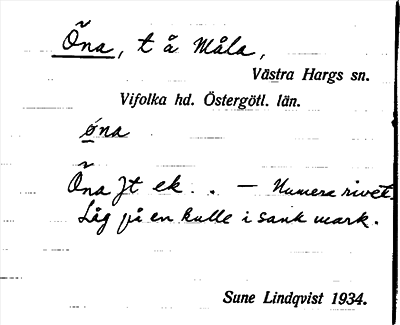 Õna, t å Måla,
Västra Hargs sn.
Vifolka hd. Östergötl. län.
øna
Õna Jt ek. . – Numera rivet.
Låg på en kulle i sank mark.
Sune Lindqvist 1934.